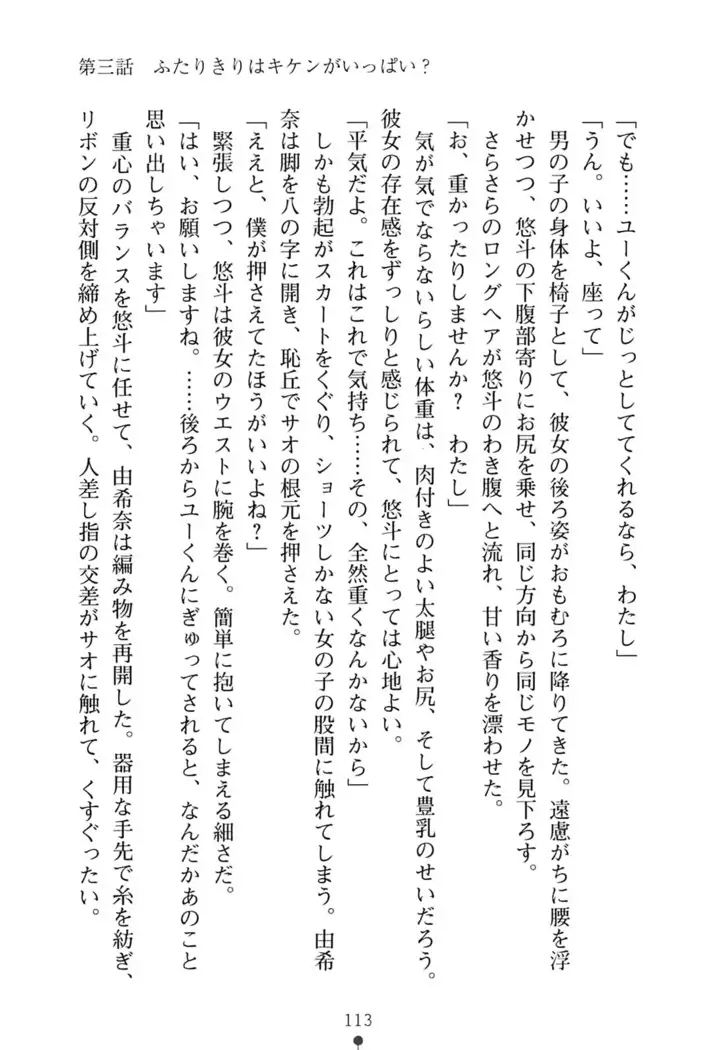 第三話　ふたりきりはキケンがいっぱい？
「でも……ユーくんがじっとしててくれるなら、わたし」
「うん。いいよ、座って」
男の子の身体を椅子として、彼女の後ろ姿がおもむろに降りてきた。遠慮がちに腰を浮
かせつつ、悠斗の下腹部寄りにお尻を乗せ、同じ方向から同じモノを見下ろす。
さらさらのロングヘアが悠斗のわき腹へと流れ、甘い香りを漂わせた。
「お、重かったりしませんか？　わたし」
気が気でならないらしい体重は、肉付きのよい太腿やお尻、そして豊乳のせいだろう。
彼女の存在感をずっしりと感じられて、悠斗にとっては心地よい。
「平気だよ。これはこれで気持ち……その、全然重くなんかないから」
しかも勃起がスカートをくぐり、ショーツしかない女の子の股間に触れてしまう。由希
奈は脚を八の字に開き、恥丘でサオの根元を押さえた。
「ええと、僕が押さえてたほうがいいよね？」
緊張しつつ、悠斗は彼女のウエストに腕を巻く。簡単に抱いてしまえる細さだ。
「はい、お願いしますね。……後ろからユーくんにぎゅってされると、なんだかあのこと
思い出しちゃいます」
重心のバランスを悠斗に任せて、由希奈は編み物を再開した。器用な手先で糸を紡ぎ、
リボンの反対側を締め上げていく。人差し指の交差がサオに触れて、くすぐったい。
113